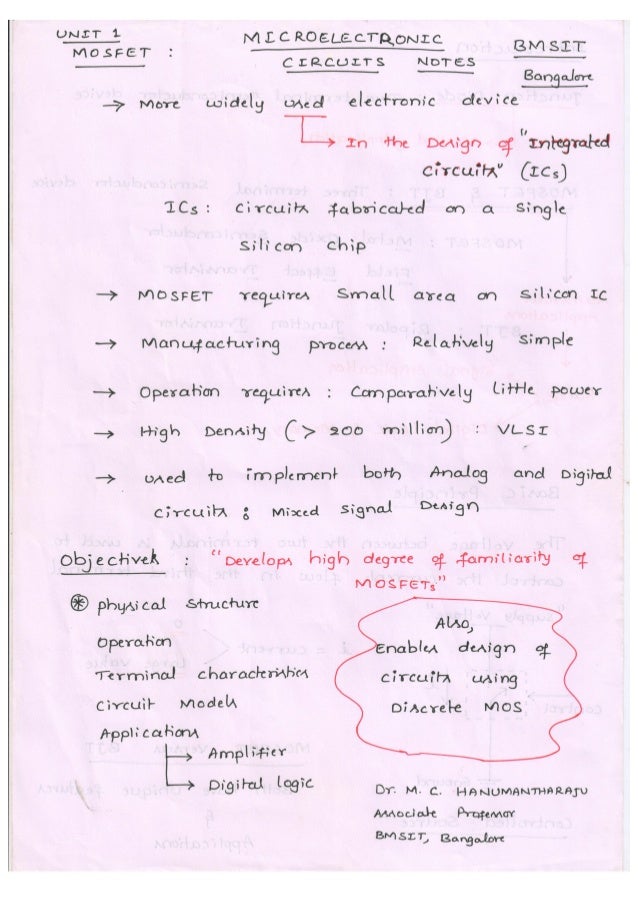 UNIT 1
MOSFET :
MICROELECTRONIC
CIRCUITS NOTES
BMSIT
Bangalore
→ More widely used electronic device
→ In the Design of "Integrated
circuits" (ICs)
ICs : circuits fabricated on a single
silicon chip
→ MOSFET requires small area on silicon IC
→ Manufacturing process : Relatively simple
→ Operation requires : Comparatively little power
→ High Density (> 200 million) : VLSI
→ used to implement both Analog and Digital
circuits : Mixed signal Design
Objectives : "Develops high degree of familiarity of
MOSFETs"
* physical structure
operation
Terminal characteristics
circuit models
Applications
→ Amplifier
→ Digital logic
Also,
Enables design of
circuits using
Discrete MOS
Dr. M. C. HANUMANTHARAJU
Associate Professor
BMSIT, Bangalore